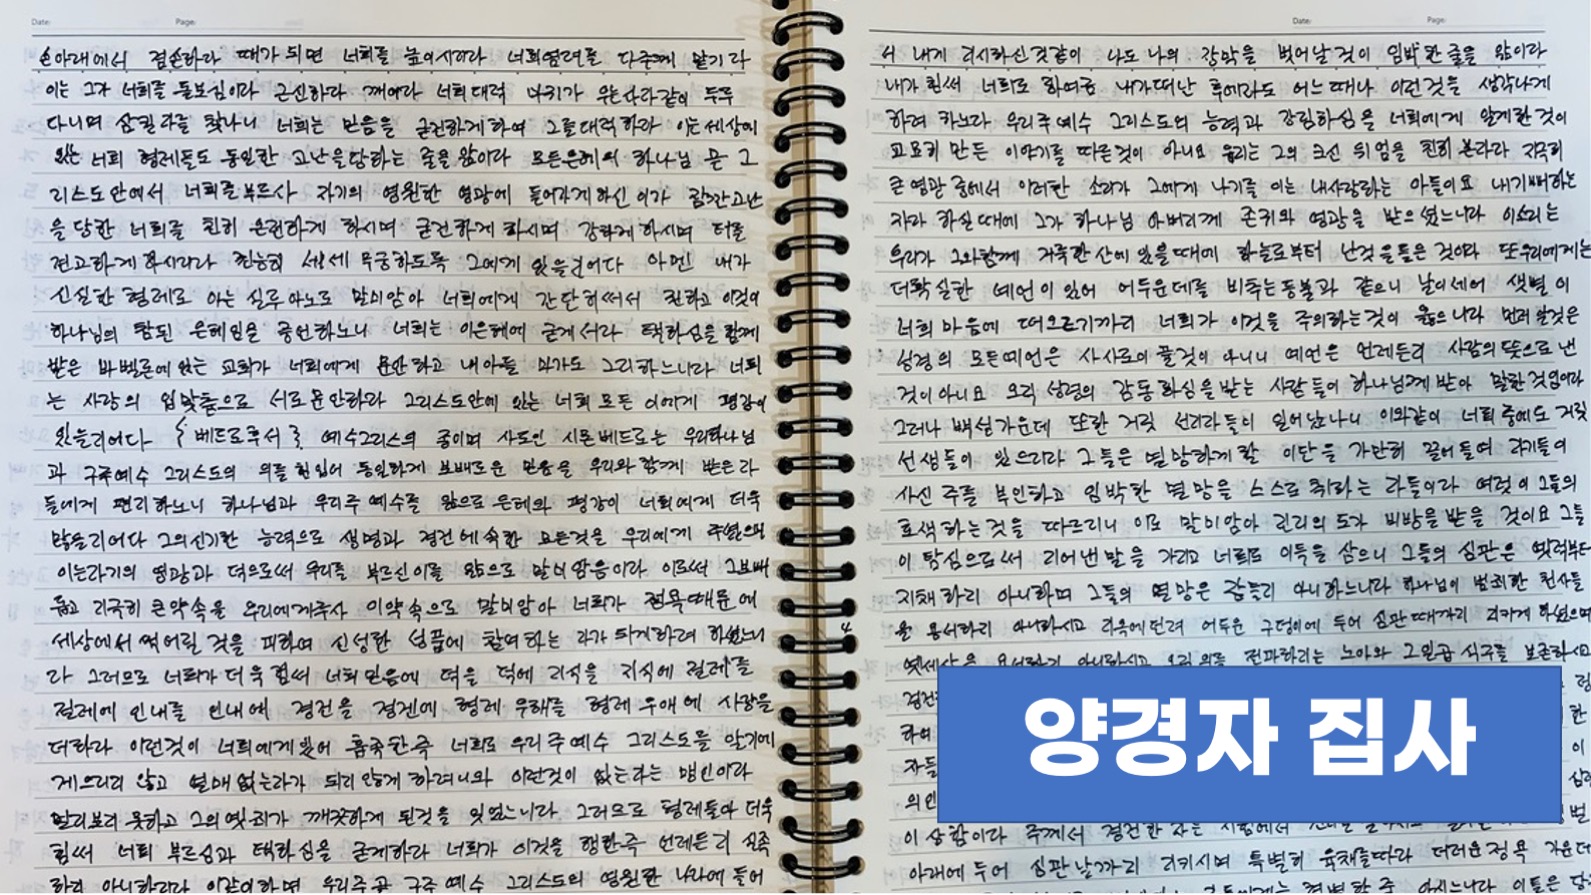 Date: Page:
손아래에서 겸손하라 때가 되면 너희를 높이시리라 너희염려를 다주께 맡기라
이는 그가 너희를 돌보심이라 근신하라 깨어라 너희대적 마귀가 우는사자같이 두루
다니며 삼킬자를 찾나니 너희는 믿음을 굳건하게하여 그를대적하라 이는세상에
있는 너희 형제들도 동일한 고난을당하는 줄을앎이라 모든은혜의 하나님 곧 그
리스도안에서 너희를부르사 자기의 영원한 영광에 들어가게하신 이가 잠깐고난
을 당한 너희를 친히 온전하게 하시며 굳건하게 하시며 강하게 하시며 터를
견고하게하시리라 권능이 세세 무궁하도록 그에게 있을지어다 아멘 내가
신실한 형제로 아는 실루아노로 말미암아 너희에게 간단히써서 권하고 이것이
하나님의 참된 은혜임을 증언하노니 너희는 이은혜에 굳게서라 택하심을 함께
받은 바벨론에 있는 교회가 너희에게 문안하고 내아들 마가도 그리하느니라 너희
는 사랑의 입맞춤으로 서로문안하라 그리스도안에 있는 너희 모든 이에게 평강이
있을지어다 {베드로후서} 예수그리스의 종이며 사도인 시몬베드로는 우리하나님
과 구주예수 그리스도의 의를 힘입어 동일하게 보배로운 믿음을 우리와 함께 받은자
들에게 편지하노니 하나님과 우리주 예수를 앎으로 은혜와 평강이 너희에게 더욱
많을지어다 그의신기한 능력으로 생명과 경건에속한 모든것을 우리에게 주셨으니
이는자기의 영광과 덕으로써 우리를 부르신이를 앎으로 말미암음이라 이로써 그보배
롭고 지극히 큰약속을 우리에게주사 이약속으로 말미암아 너희가 정욕때문에
세상에서 썩어질 것을 피하여 신성한 성품에 참여하는 자가 되게하려 하셨느니
라 그러므로 너희가 더욱 힘써 너희 믿음에 덕을 덕에 지식을 지식에 절제를
절제에 인내를 인내에 경건을 경건에 형제 우애를 형제 우애에 사랑을
더하라 이런것이 너희에게있어 흡족한즉 너희로 우리 주예수 그리스도를 알기에
게으르지 않고 열매 없는자가 되지 않게 하려니와 이런것이 없는자는 맹인이라
멀리보지 못하고 그의옛죄가 깨끗하게 된것을 잊었느니라 그러므로 형제들아 더욱
힘써 너희 부르심과 택하심을 굳게하라 너희가 이것을 행한즉 언제든지 실족
하지 아니하리라 이같이하면 우리주곧 구주 예수 그리스도의 영원한 나라에 들어
Date: Page:
서 내게 지시하신것같이 나도 나의 장막을 벗어날것이 임박한줄을 앎이라
내가 힘써 너희로 하여금 내가떠난 후에라도 어느때나 이런것을 생각나게
하려 하노라 우리주예수 그리스도의 능력과 강림하심을 너희에게 알게한것이
교묘히 만든 이야기를 따른것이 아니요 우리는 그의 크신 위엄을 친히 본자라 지극히
큰영광 중에서 이러한 소리가 그에게 나기를 이는 내사랑하는 아들이요 내기뻐하는
자라 하실때에 그가 하나님 아버지께 존귀와 영광을 받으셨느니라 이소리는
우리가 그와함께 거룩한산에 있을때에 하늘로부터 난것을들은 것이라 또우리에게는
더확실한 예언이 있어 어두운데를 비추는등불과 같으니 날이새어 샛별이
너희 마음에 떠오르기까지 너희가 이것을 주의하는것이 옳으니라 먼저알것은
성경의 모든예언은 사사로이풀것이 아니니 예언은 언제든지 사람의뜻으로 낸
것이아니요 오직 성령의 감동하심을받는 사람들이 하나님께받아 말한것임이라
그러나 백성가운데 또한 거짓 선지자들이 일어났나니 이와같이 너희중에도 거짓
선생들이 있으리라 그들은 멸망하게할 이단을 가만히 끌어들여 자기들의
사신 주를 부인하고 임박한 멸망을 스스로 취하는 자들이라 여럿이 그들의
호색하는것을 따르리니 이로 말미암아 진리의 도가 비방을받을 것이요 그들
이 탐심으로써 지어낸말을 가지고 너희로 이득을 삼으니 그들의 심판은 옛적부터
지체하지 아니하며 그들의 멸망은 잠들지 아니하느니라 하나님이 범죄한 천사들
을 용서하지 아니하시고 지옥에던져 어두운 구덩이에 두어 심판때까지 지키게 하셨으며
옛세상을 용서하지 아니하시고 오직의를 전파하는 노아와 그일곱 식구를 보존하시고
경건
하여
자들
의인
양경자 집사
이상함이라 주께서 경건한 자는 시험에서
아래에두어 심판날까지 지키시며 특별히 육체를따라 더러운정욕 가운데